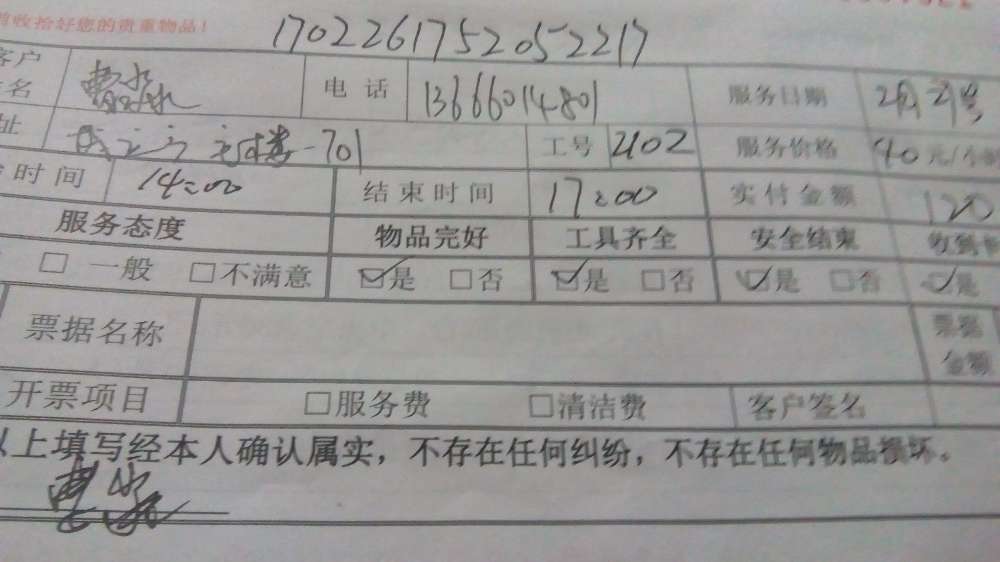 收拾好您的贵重物品!
1702261752052217
客户 电话 13666014801 服务日期 2月
名
址 701 工号 2102 服务价格 40元/小时
时间 14:00 结束时间 17:00 实付金额 120
服务态度 物品完好 工具齐全 安全结束 收到
□ 一般 □不满意 ☑是 □否 ☑是 □否 ☑是 □否 ☑是
票据名称 票据金额
开票项目 □服务费 □清洁费 客户签名
以上填写经本人确认属实，不存在任何纠纷，不存在任何物品损坏。